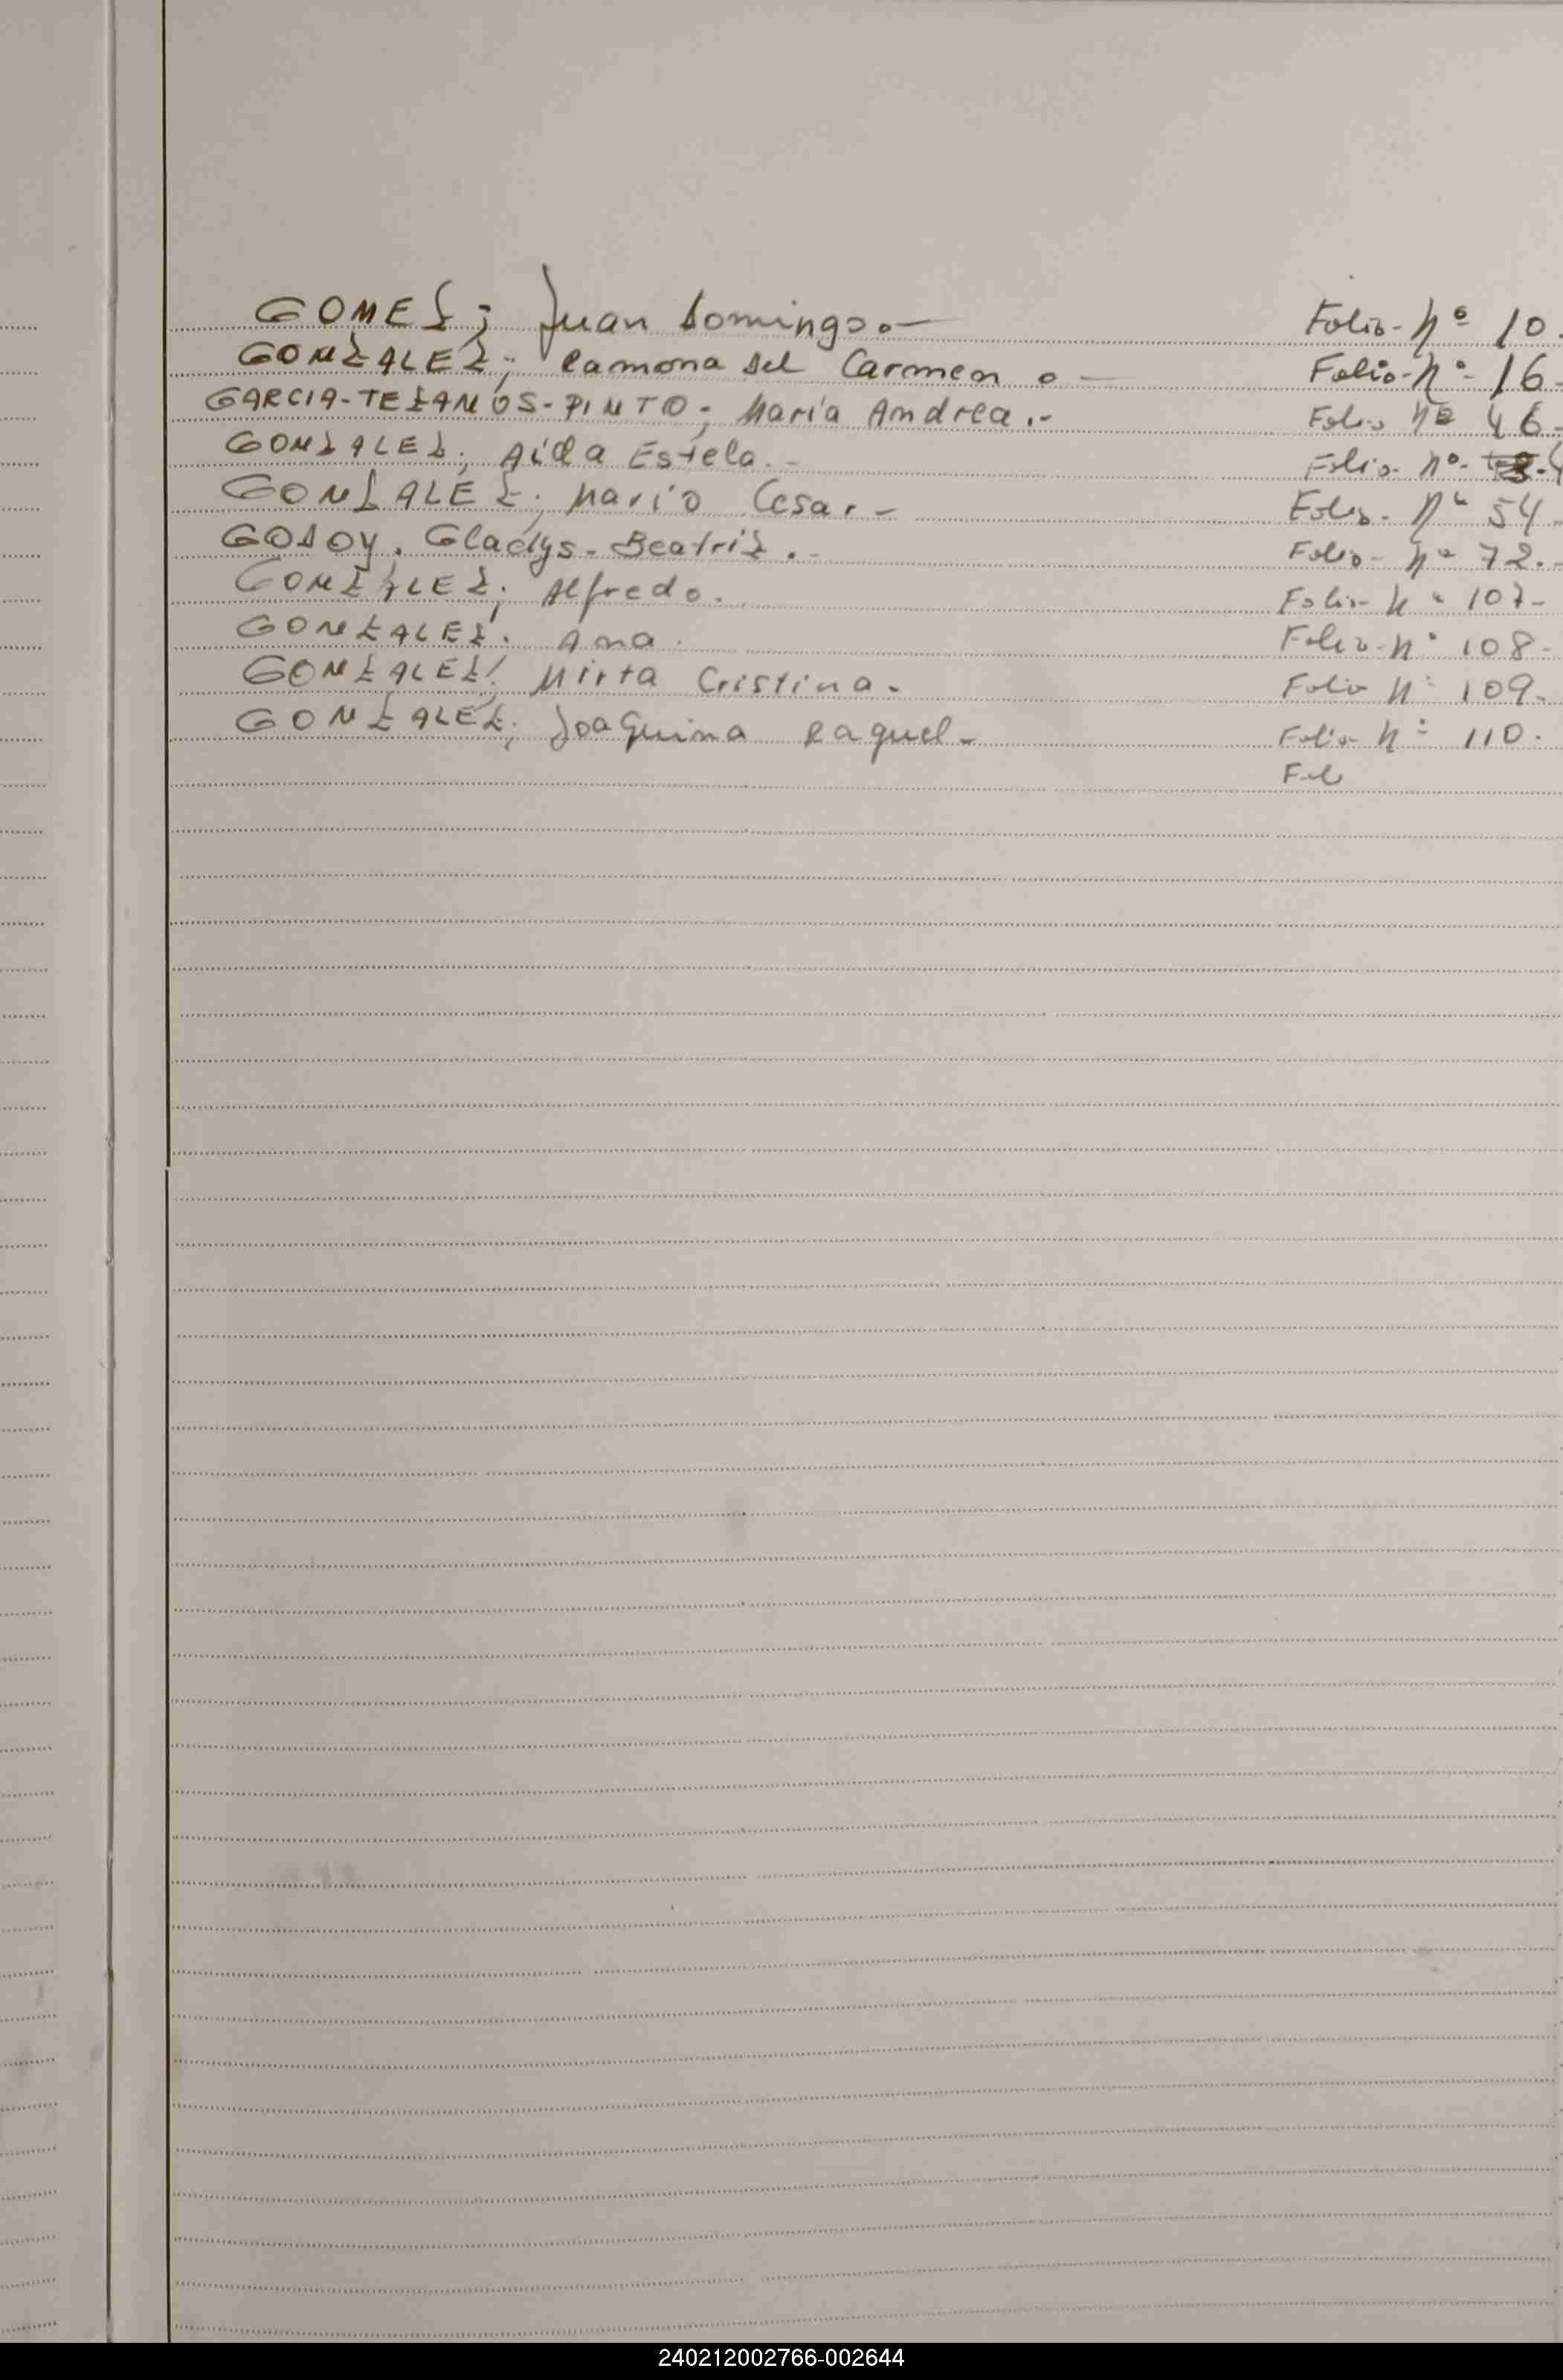 GOMEZ; Juan Domingo.- Folio-Nº 10.
GONZALEZ; Ramona Del Carmen.- Folio-Nº 16.
GARCIA-TEZANOS-PINTO; Maria Andrea.- Folio Nº 46-
GONZALEZ; Aida Estela.- Folio-Nº
GONZALEZ; Mario Cesar- Folio-Nº 54-
GODOY. Gladys-Beatriz.- Folio-Nº 72.-
GONZALEZ; Alfredo. Folio-Nº 107-
GONZALEZ; Ana. Folio-Nº 108-
GONZALEZ; Mirta Cristina. Folio Nº 109-
GONZALEZ; Joaquina Raquel- Folio Nº 110.
Fol
240212002766-002644